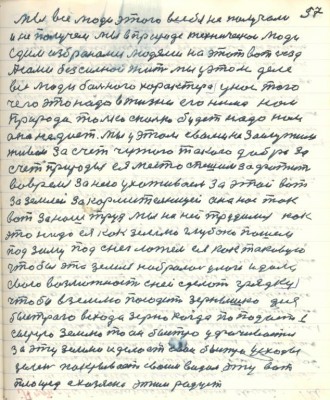 37
Мы все люди этого всего не получали
и не получем мы в природе технически люди
с дин избраными людями на этот вот ход
Атаки безсильной жить мы у этом деле
все люди больного характера у нас того
чего это надо в жизне его нима нам
природа только сколько будет надо нам
она не дает. Мы у этом своим не заслужили
живем за счет чужого такого добра за
счет природы ея место спешим захватить
вовремя за нею ухаживаем за этой вот
за землей за кормительницей она нас так
вот за наш труд мы на ней трудимся как
это надо ея как землю глубоко пашем
под зиму под снег ложем ея как таковую
чтобы эта земля набралась влаги и дала
свою возможность с ней сделать грядку
чтобы в землю посадить зернышко для
быстрого всхода зерно когда попадает в
сырую землю то оно быстро
за эту землю и делает свои быстро всходы
зелен покрывает своим видом эту вот
площад сказано этим радует